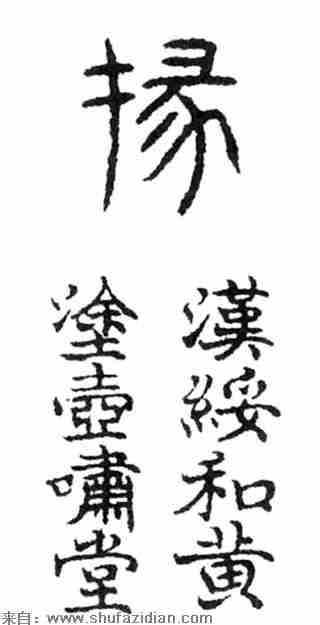 掾
漢綏和黄
塗壺嘯堂
来自：www.shufazidian.com